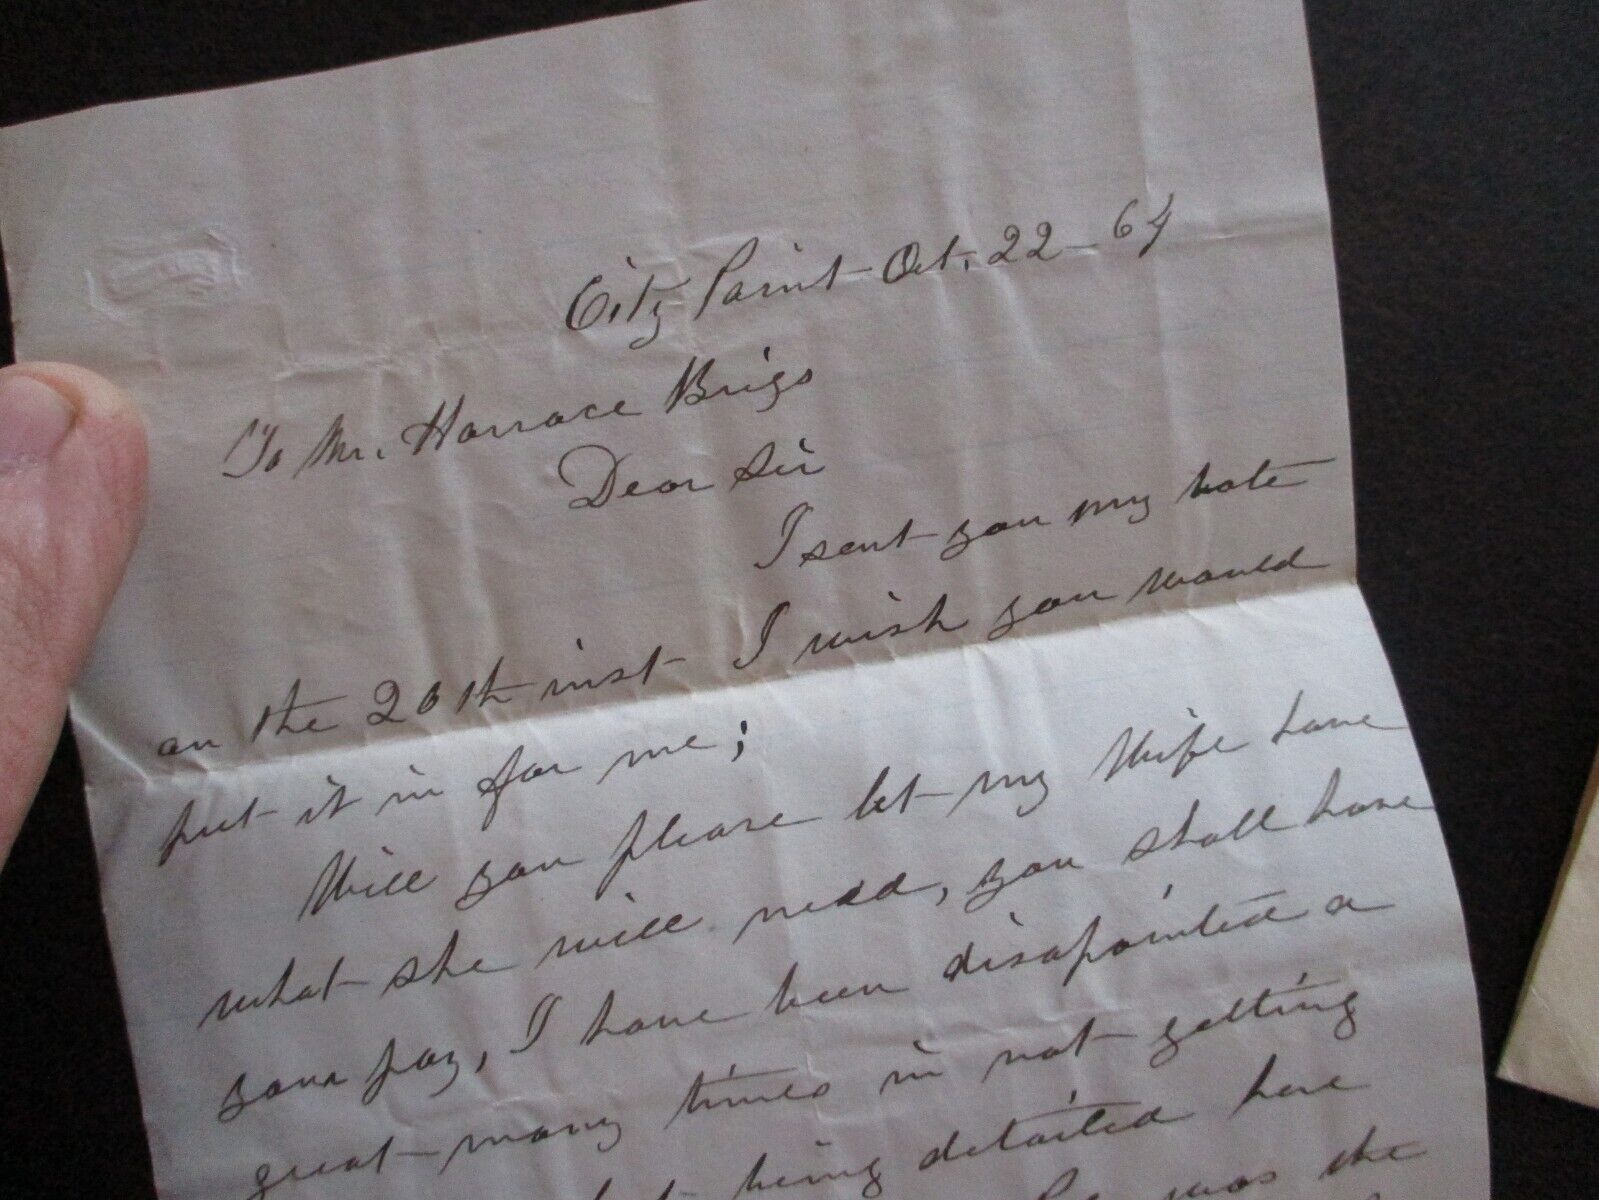 City Point Oct. 22 - 64
To Mr. Horrace Brigs
Dear Sir
I sent you my vote
on the 20th inst I wish you would
put it in for me;
Will you please let my Wife have
what she will need, you shall have
your pay, I have been disapointed a
great many times in not getting
being detailed here
was the